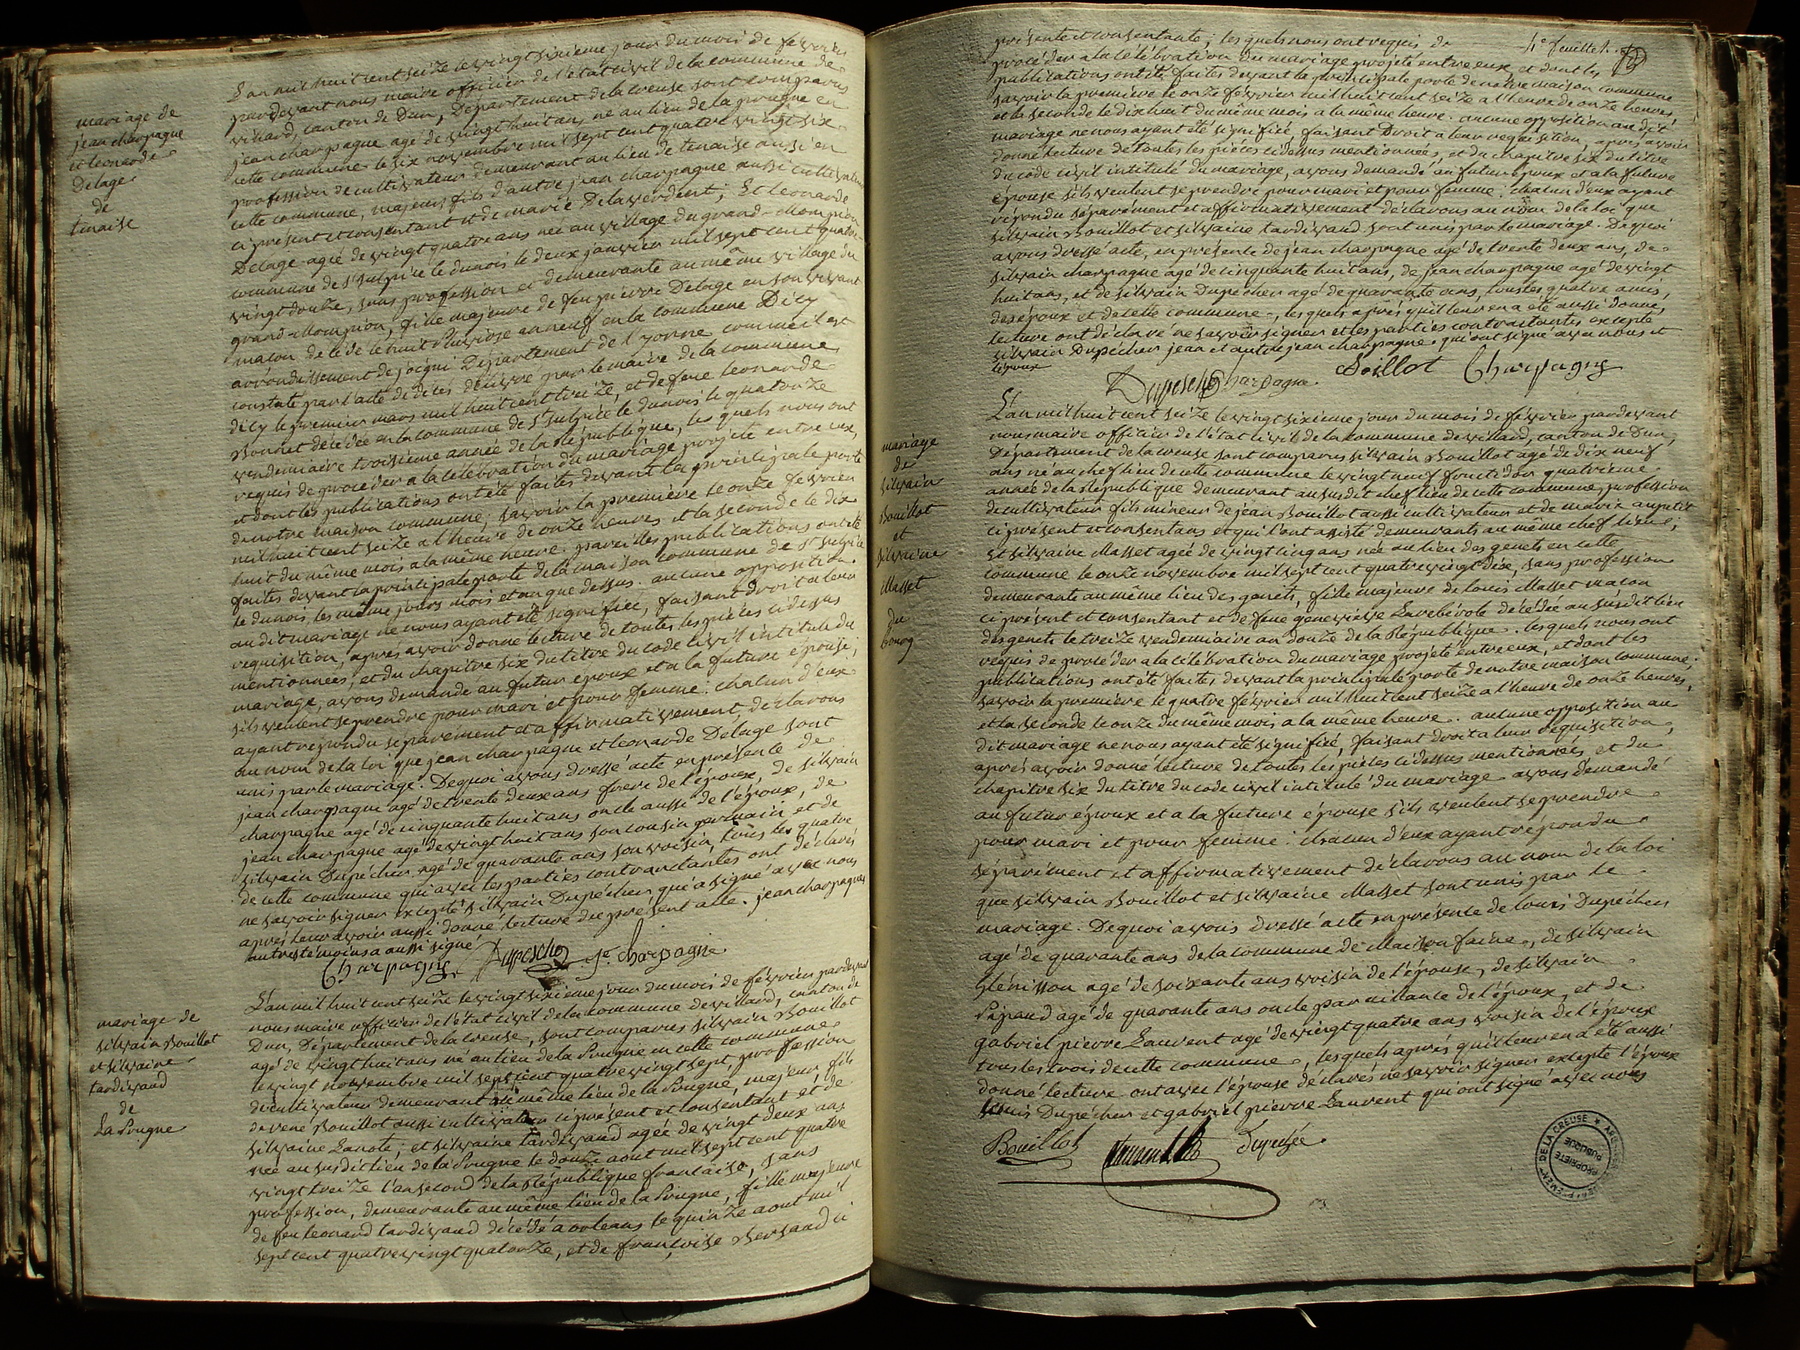 mariage de
jean charpagne
et leonarde
Delage
de
tinaise
L'an mil huit cent seize le vingt sixieme jour du mois de fevrier
pardevant nous maire officier de l'état civil de la commune de
villard, canton de Dun, Département de la creuse sont comparus
jean charpagne agé de vingt huit ans, né au lieu de la pougne en
cette commune le six novembre mil sept cent quatre vingt six
profession de cultivateur demeurant au lieu de tinaise aussi en
cette commune, majeur fils d'autre jean charpagne aussi cultivateur
ci présent et consentant et de marie Delaverdent; Et leonarde
Delage agée de vingt quatre ans née au village du grand-Mompion
commune de St sulpice le dunois le deux janvier mil sept cent quatre
vingt douze, sans profession et demeurante au même village du
grand-Mompion, fille majeure de feu pierre Delage en son vivant
maçon décédé le huit Pluviose an neuf en la commune Dicy
arrondissement de joigni Département de l'yonne comme il est
constaté par l'acte de décès délivré par le maire de la commune
dicy le premier mars mil huit cent treize, et de feue leonarde
Bonnet décédée en la commune de St sulpice le dunois le quatorze
vendemiaire troisieme année de la République, les quels nous ont
requis de proceder a la célébration du mariage projeté entre eux,
et dont les publications ont été faites devant la principale porte
de notre maison commune, savoir la première le onze fevrier
mil huit cent seize a l'heure de onze heures et la seconde le dix
huit du même mois a la même heure. pareilles publications ont été
faites devant la principale porte de la maison commune de St sulpice
le dunois, les même jours mois et an que dessus. aucune opposition
au dit mariage ne nous ayant été signifiée, faisant droit a leur
requisition, après avoir donné lecture de toutes les pièces cidessus
mentionnées, et du chapitre six du titre du code civil intitulé du
mariage, avons demandé au futur époux et a la future épouse,
s'ils veulent se prendre pour mari et pour femme: chacun d'eux
ayant répondu séparement et affirmativement, déclarons
au nom de la loi que jean charpagne et leonarde Delage sont
unis par le mariage. De quoi avons dressé acte en présence de
jean charpagne agé de trente deux ans frere de l'époux, de silvain
charpagne agé de cinquante huit ans oncle aussi de l'époux, de
jean charpagne agé de vingt huit ans son cousin germain et de
silvain Dupécher agé de quarante ans son voisin, tous les quatre
de cette commune qui avec les parties contractantes ont déclarés
ne savoir signer excepté silvain Dupécher qui a signé avec nous
après leur avoir aussi donné lecture du présent acte. jean charpagne
autre témoins a aussi signé
Charpagne Dupescher Je. charpagne
mariage de
silvain Bouillot
et silvaine
tardivaud
de
La Pougne
L'an mil huit cent seize le vingt sixieme jour du mois de février pardevant
nous maire officier de l'état civil de la commune de villard, canton de
Dun, Département de la creuse, sont comparus silvain Bouillot
agé de vingt huit ans né au lieu de la Pougne en cette commune
le vingt novembre mil sept cent quatre vingt sept, profession
de cultivateur demeurant au même lieu de la Pougne, majeur fils
de rené Bouillot aussi cultivateur ci présent et consentant et de
silvaine Lanote; et silvaine tardivaud agée de vingt deux ans
née au susdit lieu de la Pougne le douze aout mil sept cent quatre
vingt treize l'an second de la République française, sans
profession, demeurante au même lieu de la Pougne, fille majeure
de feu leonard tardivaud décédé a orleans le quinze aout mil
sept cent quatrevingt quatorze, et de françoise Bersaud ci
4e feuillet.
présente et consentante; les quels nous ont requis de
proceder a la célébration du mariage projeté entre eux, et dont les
publications ont été faites devant la principale porte de notre maison commune
savoir la première le onze fevrier mil huit cent seize a l'heure de onze heures,
et la seconde le dix huit du même mois a la même heure. aucune opposition au dit
mariage ne nous ayant été signifiée, faisant Droit a leur requisition, après avoir
donné lecture de toutes les pièces cidessus mentionnées, et du chapitre six du titre
du code civil intitulé du mariage, avons demandé au futur époux et a la future
épouse s'ils veulent se prendre pour mari et pour femme: chacun d'eux ayant
répondu séparément et affirmativement déclarons au nom de la loi que
silvain Bouillot et silvaine tardivaud sont unis par le mariage. De quoi
avons dressé acte, en présence de jean charpagne agé de trente deux ans, de
silvain charpagne agé de cinquante huit ans, de jean charpagne agé de vingt
huit ans, et de silvain Dupécher agé de quarante ans, tous les quatre amis,
des époux et de cette commune, les quels après qu'il leur en a été aussi donné,
lecture ont déclaré ne savoir signer et les parties contractantes excepté
silvain Dupécher jean et autre jean charpagne qui ont signé avec nous et
l'époux
Boillot Charpagne
Dupescher charpagne
mariage
de
silvain
Bouillot
et
silvaine
Masset
du
bourg
L'an mil huit cent seize le vingt sixieme jour du mois de février pardevant
nous maire officier de l'état civil de la commune de villard, canton de Dun,
Département de la creuse sont comparus silvain Bouillot agé de dix neuf
ans né au chef lieu de cette commune le vingt neuf fructidor quatrième
année de la République demeurant au susdit chef lieu de cette commune, profession
de cultivateur fils mineur de jean Bouillot aussi cultivateur et de marie
ci présent et consentans et qui l'ont assisté demeurants au même chef lieu;
et silvaine Masset agée de vingt cinq ans née au lieu des genets en cette
commune le onze novembre mil sept cent quatre vingt dix, sans profession
demeurante au même lieu des genets, fille majeure de louis Masset maçon
ci présent et consentant et de feue genevieve décédée au susdit lieu
des genets le treize vendemiaire an douze de la République. les quels nous ont
requis de procéder a la célébration du mariage projeté entre eux, et dont les
publications ont été faites devant la principale porte de notre maison commune;
savoir la première le quatre février mil huit cent seize a l'heure de onze heures,
et la seconde le onze du même mois a la même heure. aucune opposition au
dit mariage ne nous ayant été signifiée, faisant droit a leur requisition,
après avoir donné lecture de toutes les pièces cidessus mentionnées, et du
chapitre six du titre du code civil intitulé du mariage avons demandé
au futur époux et a la future épouse s'ils veulent se prendre
pour mari et pour femme: chacun d'eux ayant répondu
séparément et affirmativement déclarons au nom de la loi
que silvain Bouillot et silvaine Masset sont unis par le
mariage. De quoi avons dressé acte en présence de louis Dupécher
agé de quarante ans de la commune de Maison faine, de silvain
Glénisson agé de soixante ans voisin de l'épouse, de silvain
Pipaud agé de quarante ans oncle par alliance de l'époux, et de
gabriel pierre Laurent agé de vingt quatre ans voisin de l'époux
tous les trois de cette commune, les quels après qu'il leur en a été aussi
donné lecture ont avec l'épouse déclarés ne savoir signer excepté l'époux
louis Dupécher et gabriel pierre Laurent qui ont signé avec nous
Bouillot Laurent Dupeché
ARCHIVES DEPARTEMENT. DE LA CREUSE
PROPRIETE PUBLIQUE